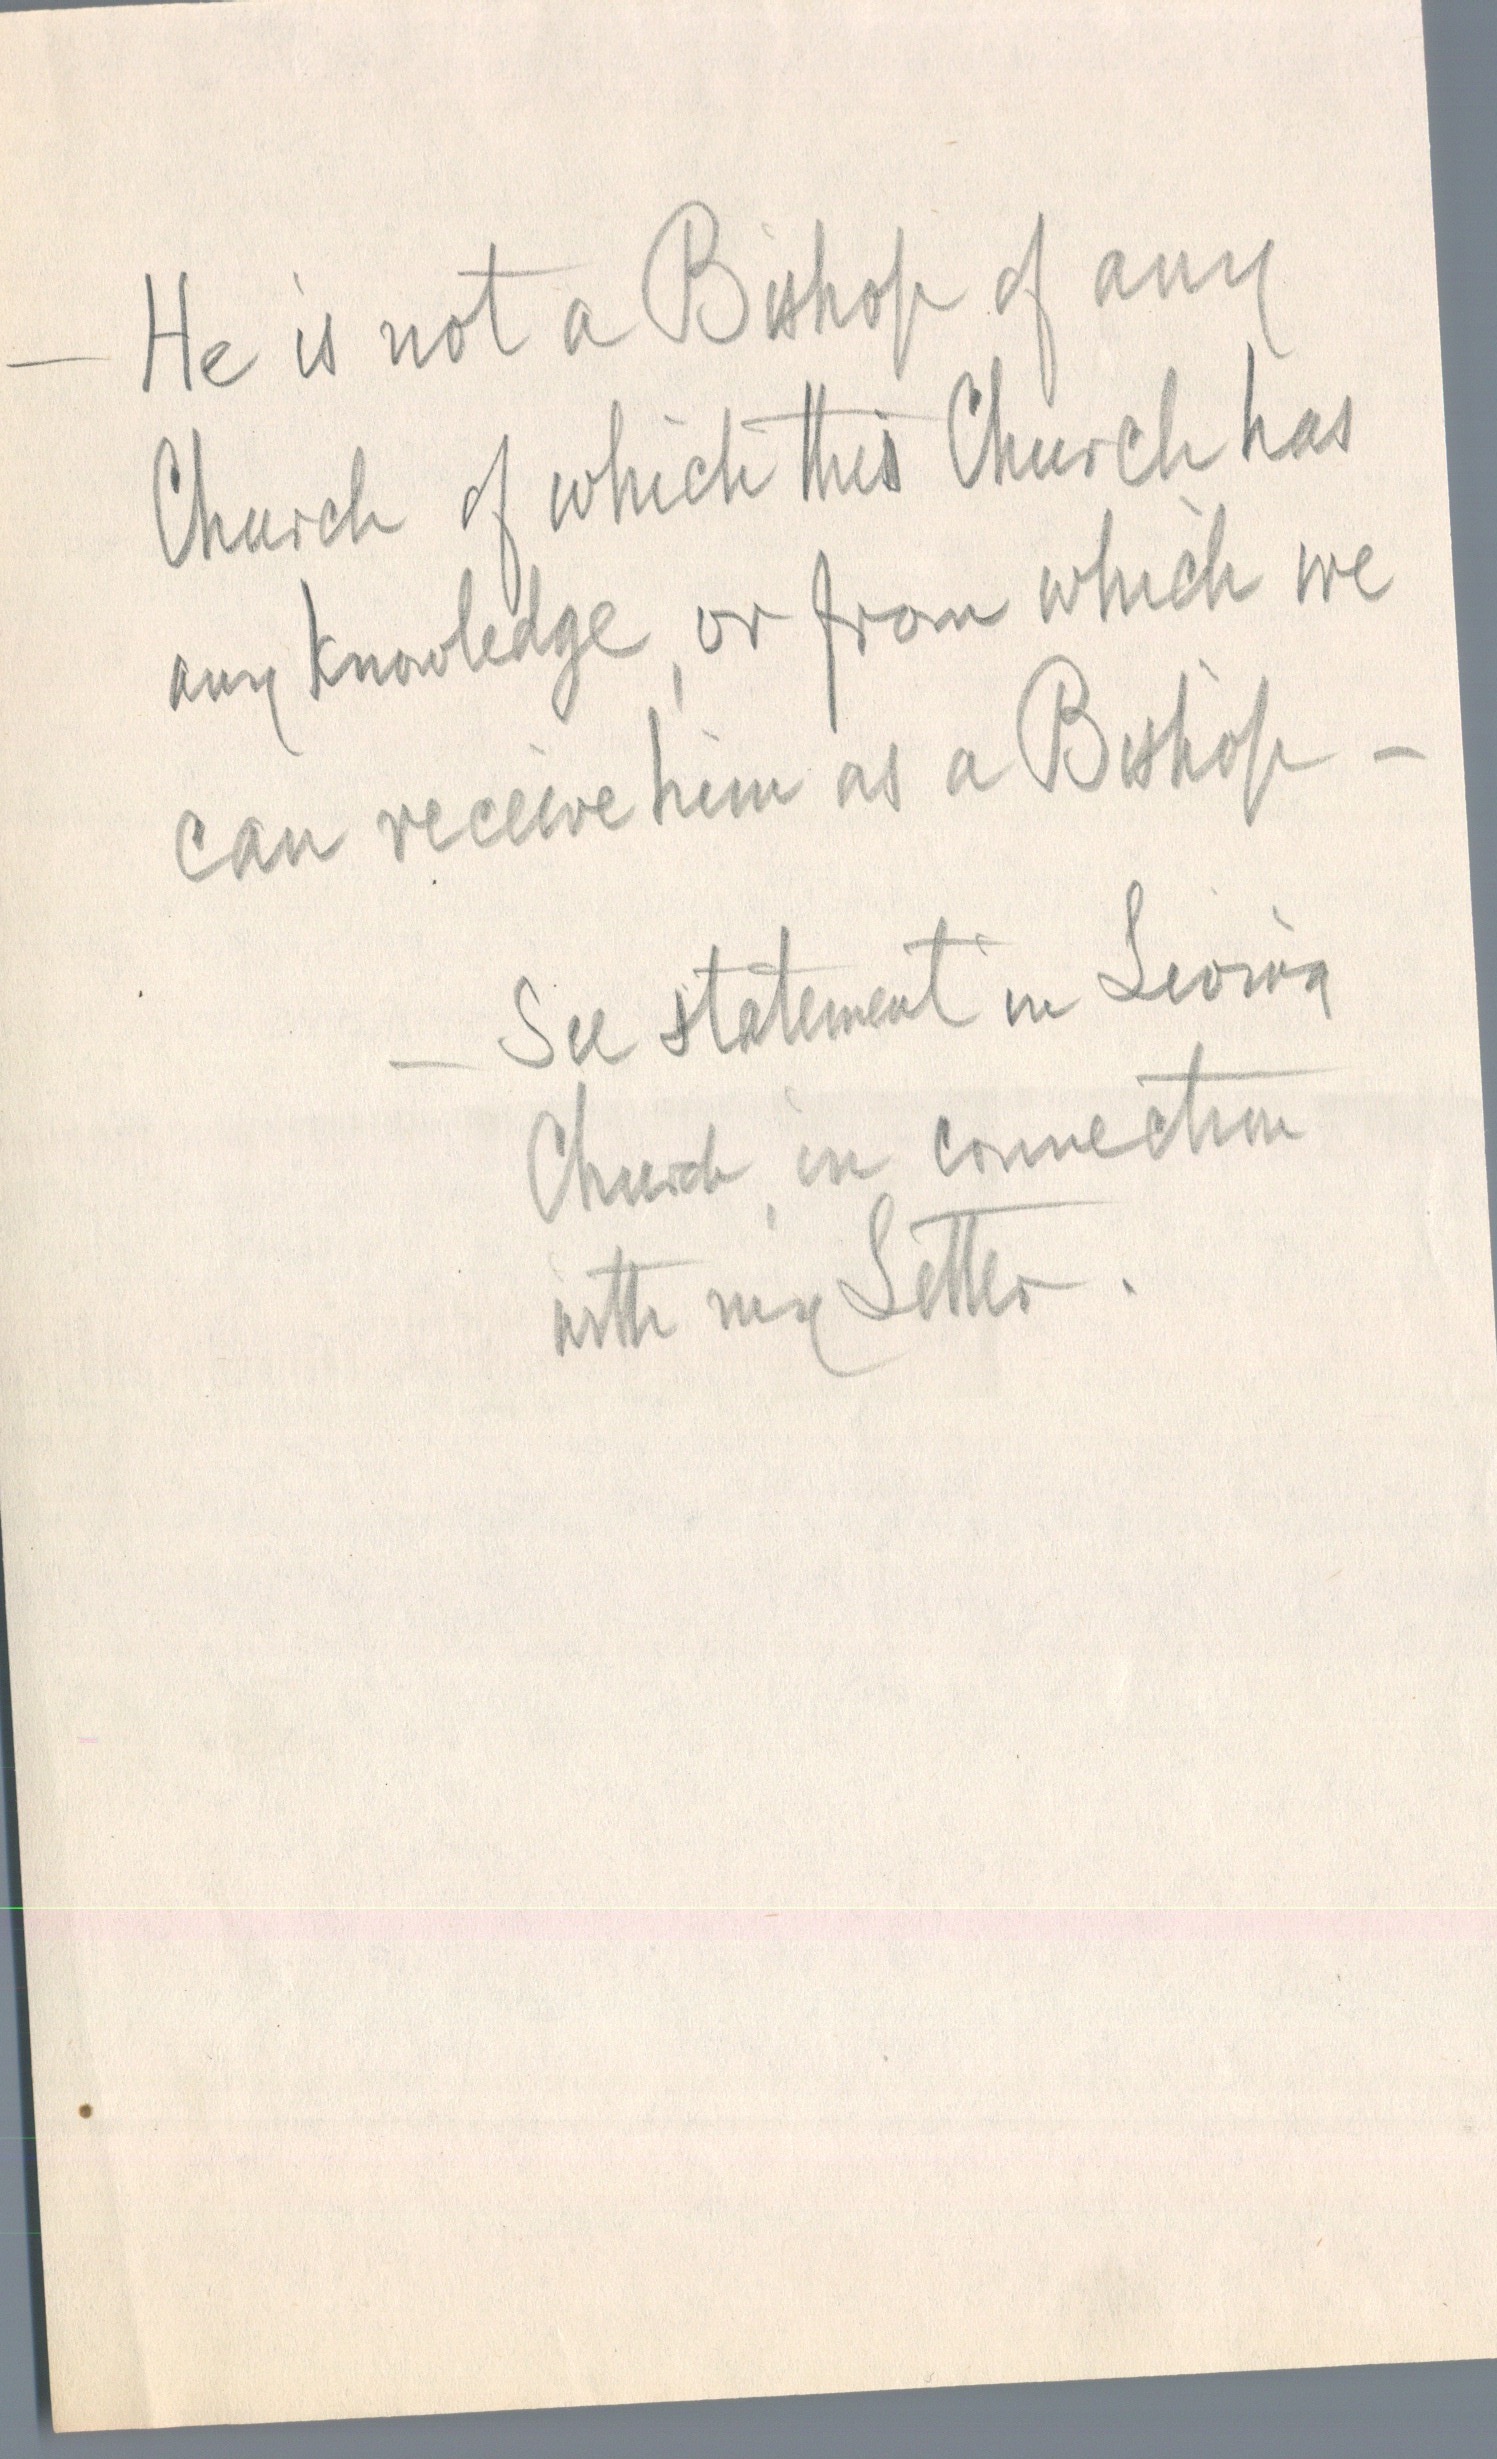 — He is not a Bishop of any
Church of which this Church has
any knowledge, or from which we
can receive him as a Bishop —
— See statement in Living
Church, in connection
with my Letter.